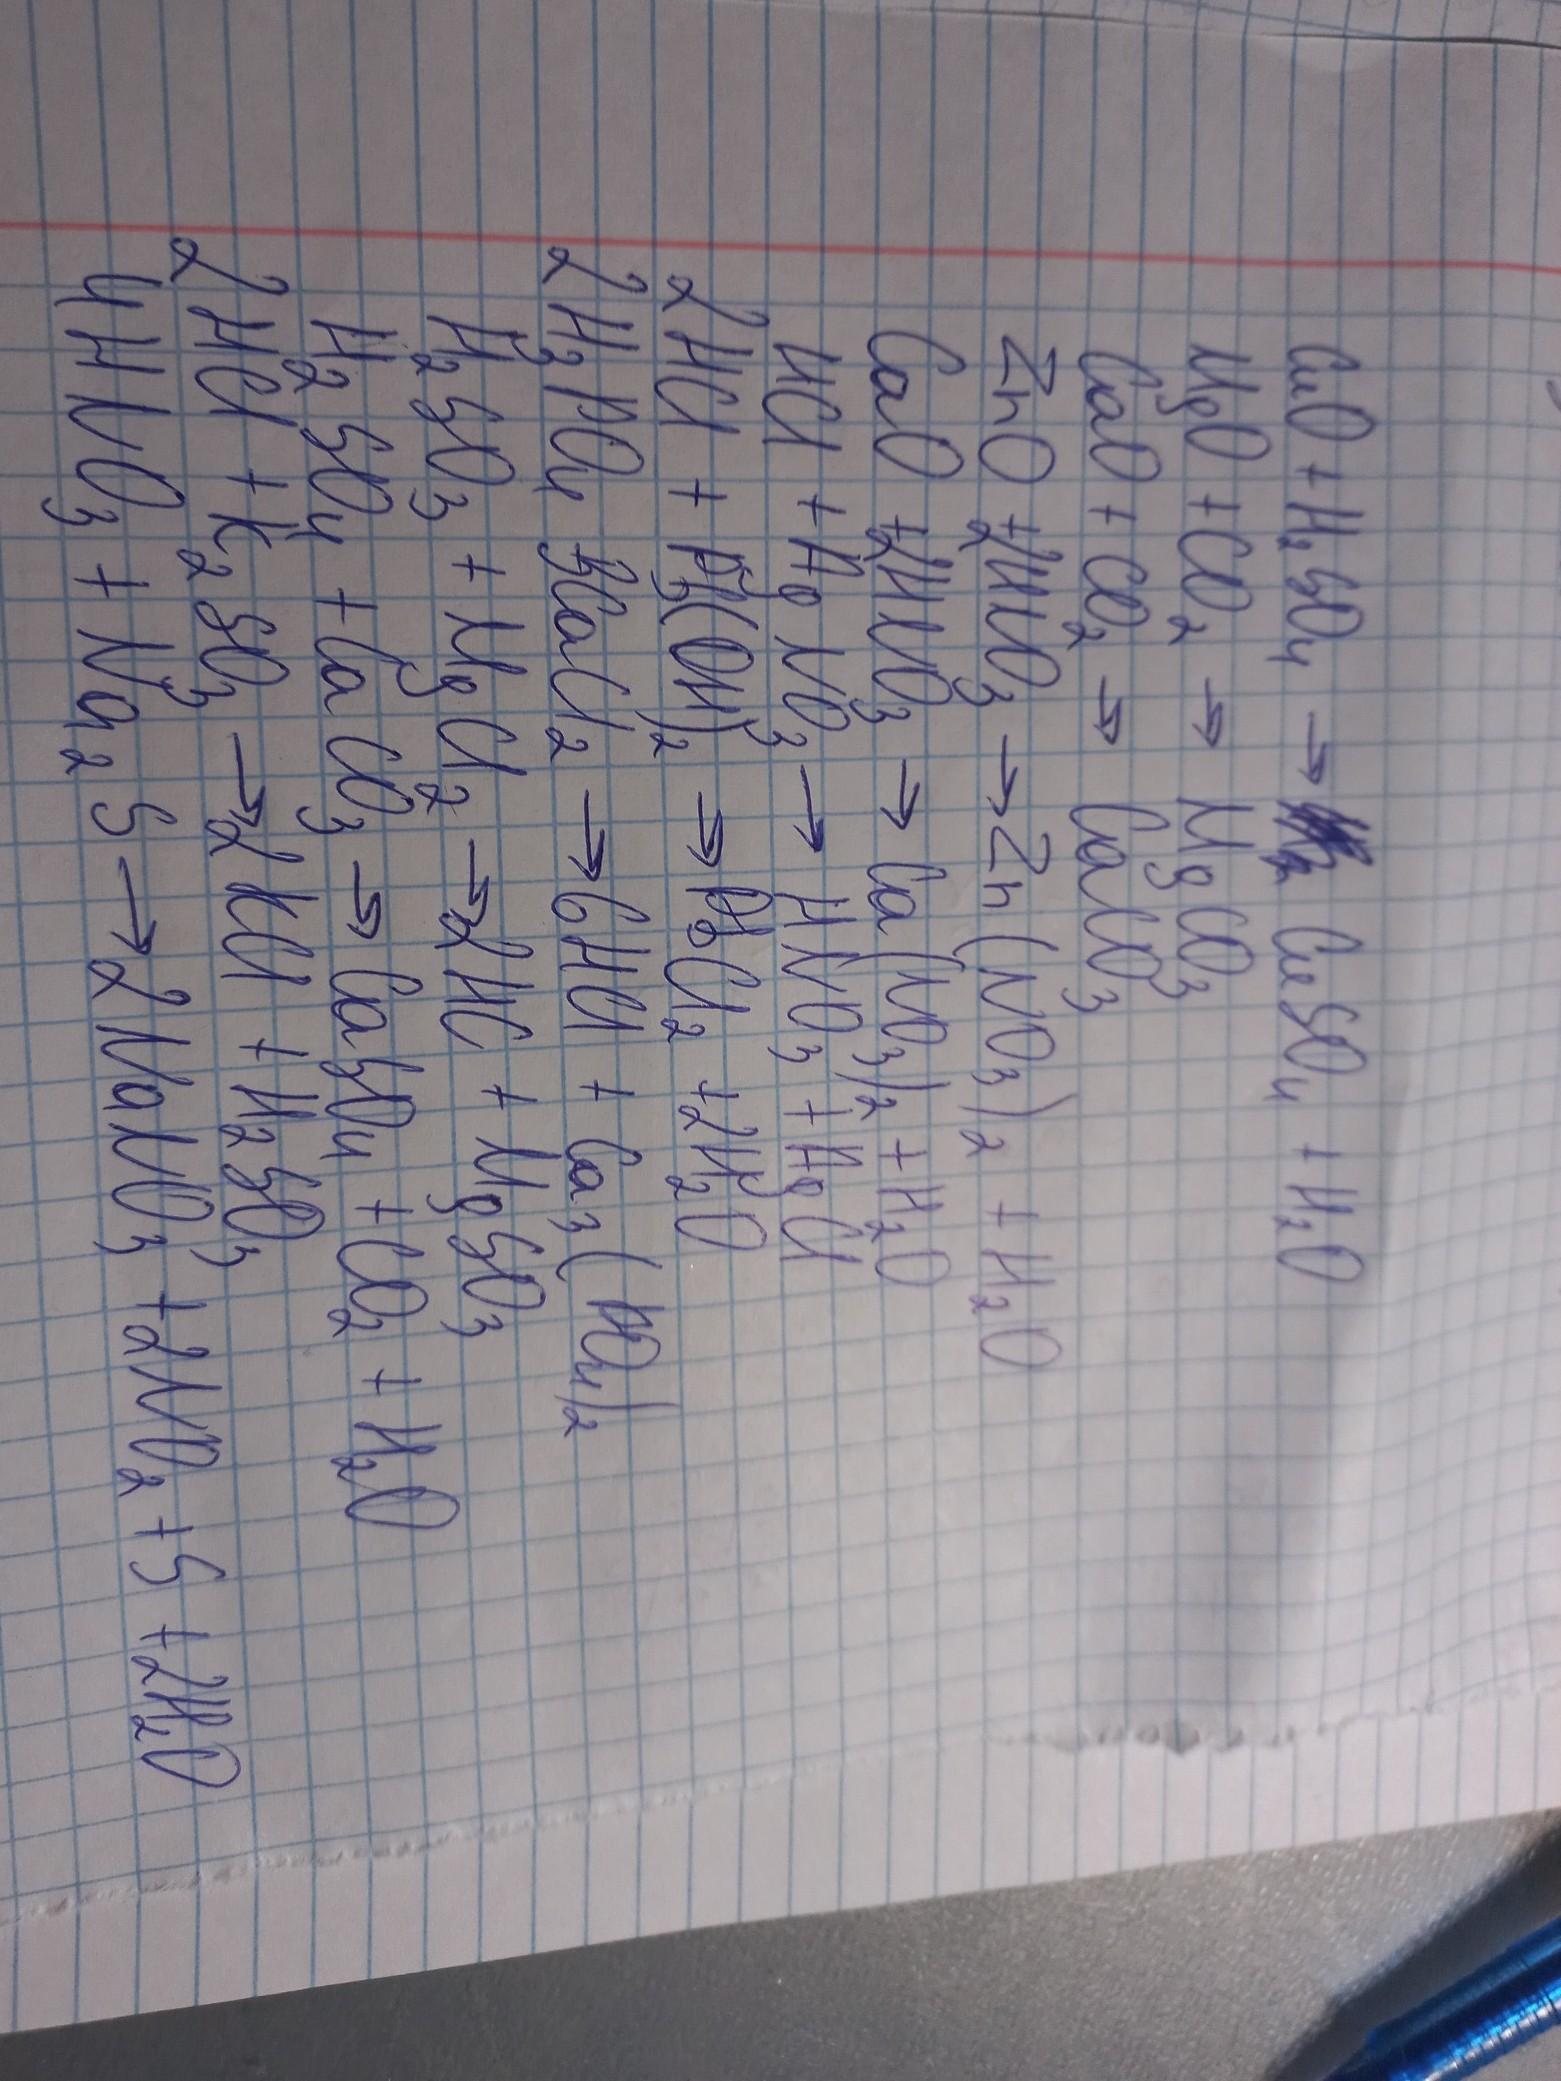 CuO + H₂SO₄ → CuSO₄ + H₂O
MgO + CO₂ → MgCO₃
CaO + CO₂ → CaCO₃
ZnO + 2HNO₃ → Zn(NO₃)₂ + H₂O
CaO + 2HNO₃ → Ca(NO₃)₂ + H₂O
HCl + AgNO₃ → HNO₃ + AgCl
2HCl + Pb(OH)₂ → PbCl₂ + 2H₂O
2H₃PO₄ 3CaCl₂ → 6HCl + Ca₃(PO₄)₂
H₂SO₃ + MgCl₂ → 2HC + MgSO₃
H₂SO₄ + CaCO₃ → CaSO₄ + CO₂ + H₂O
2HCl + K₂SO₃ → 2KCl + H₂SO₃
4HNO₃ + Na₂S → 2NaNO₃ + 2NO₂ + S + 2H₂O